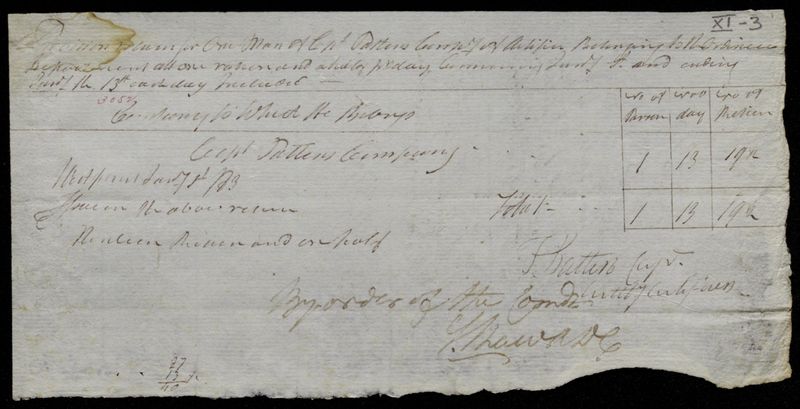 XI-3
Provision Return for One Man of Cpt Pattens Compy of Artifisr Belonging to the Ordinance
Department at one ration and a half pr day Commencing Jany 1st and ending
Jany the 13th each day Included
3052
Company to Which He Belongs
No of Parson
No of day
No of Ration
Capt Pattens Company
1 13 19½
West point Jany 1st 1783
the above return
Total
1 13 19½
Nineteen Rations and on half
T. Patten Capt.
Artifisers
By order of the Comdt
Shaw A D C
27
13
40